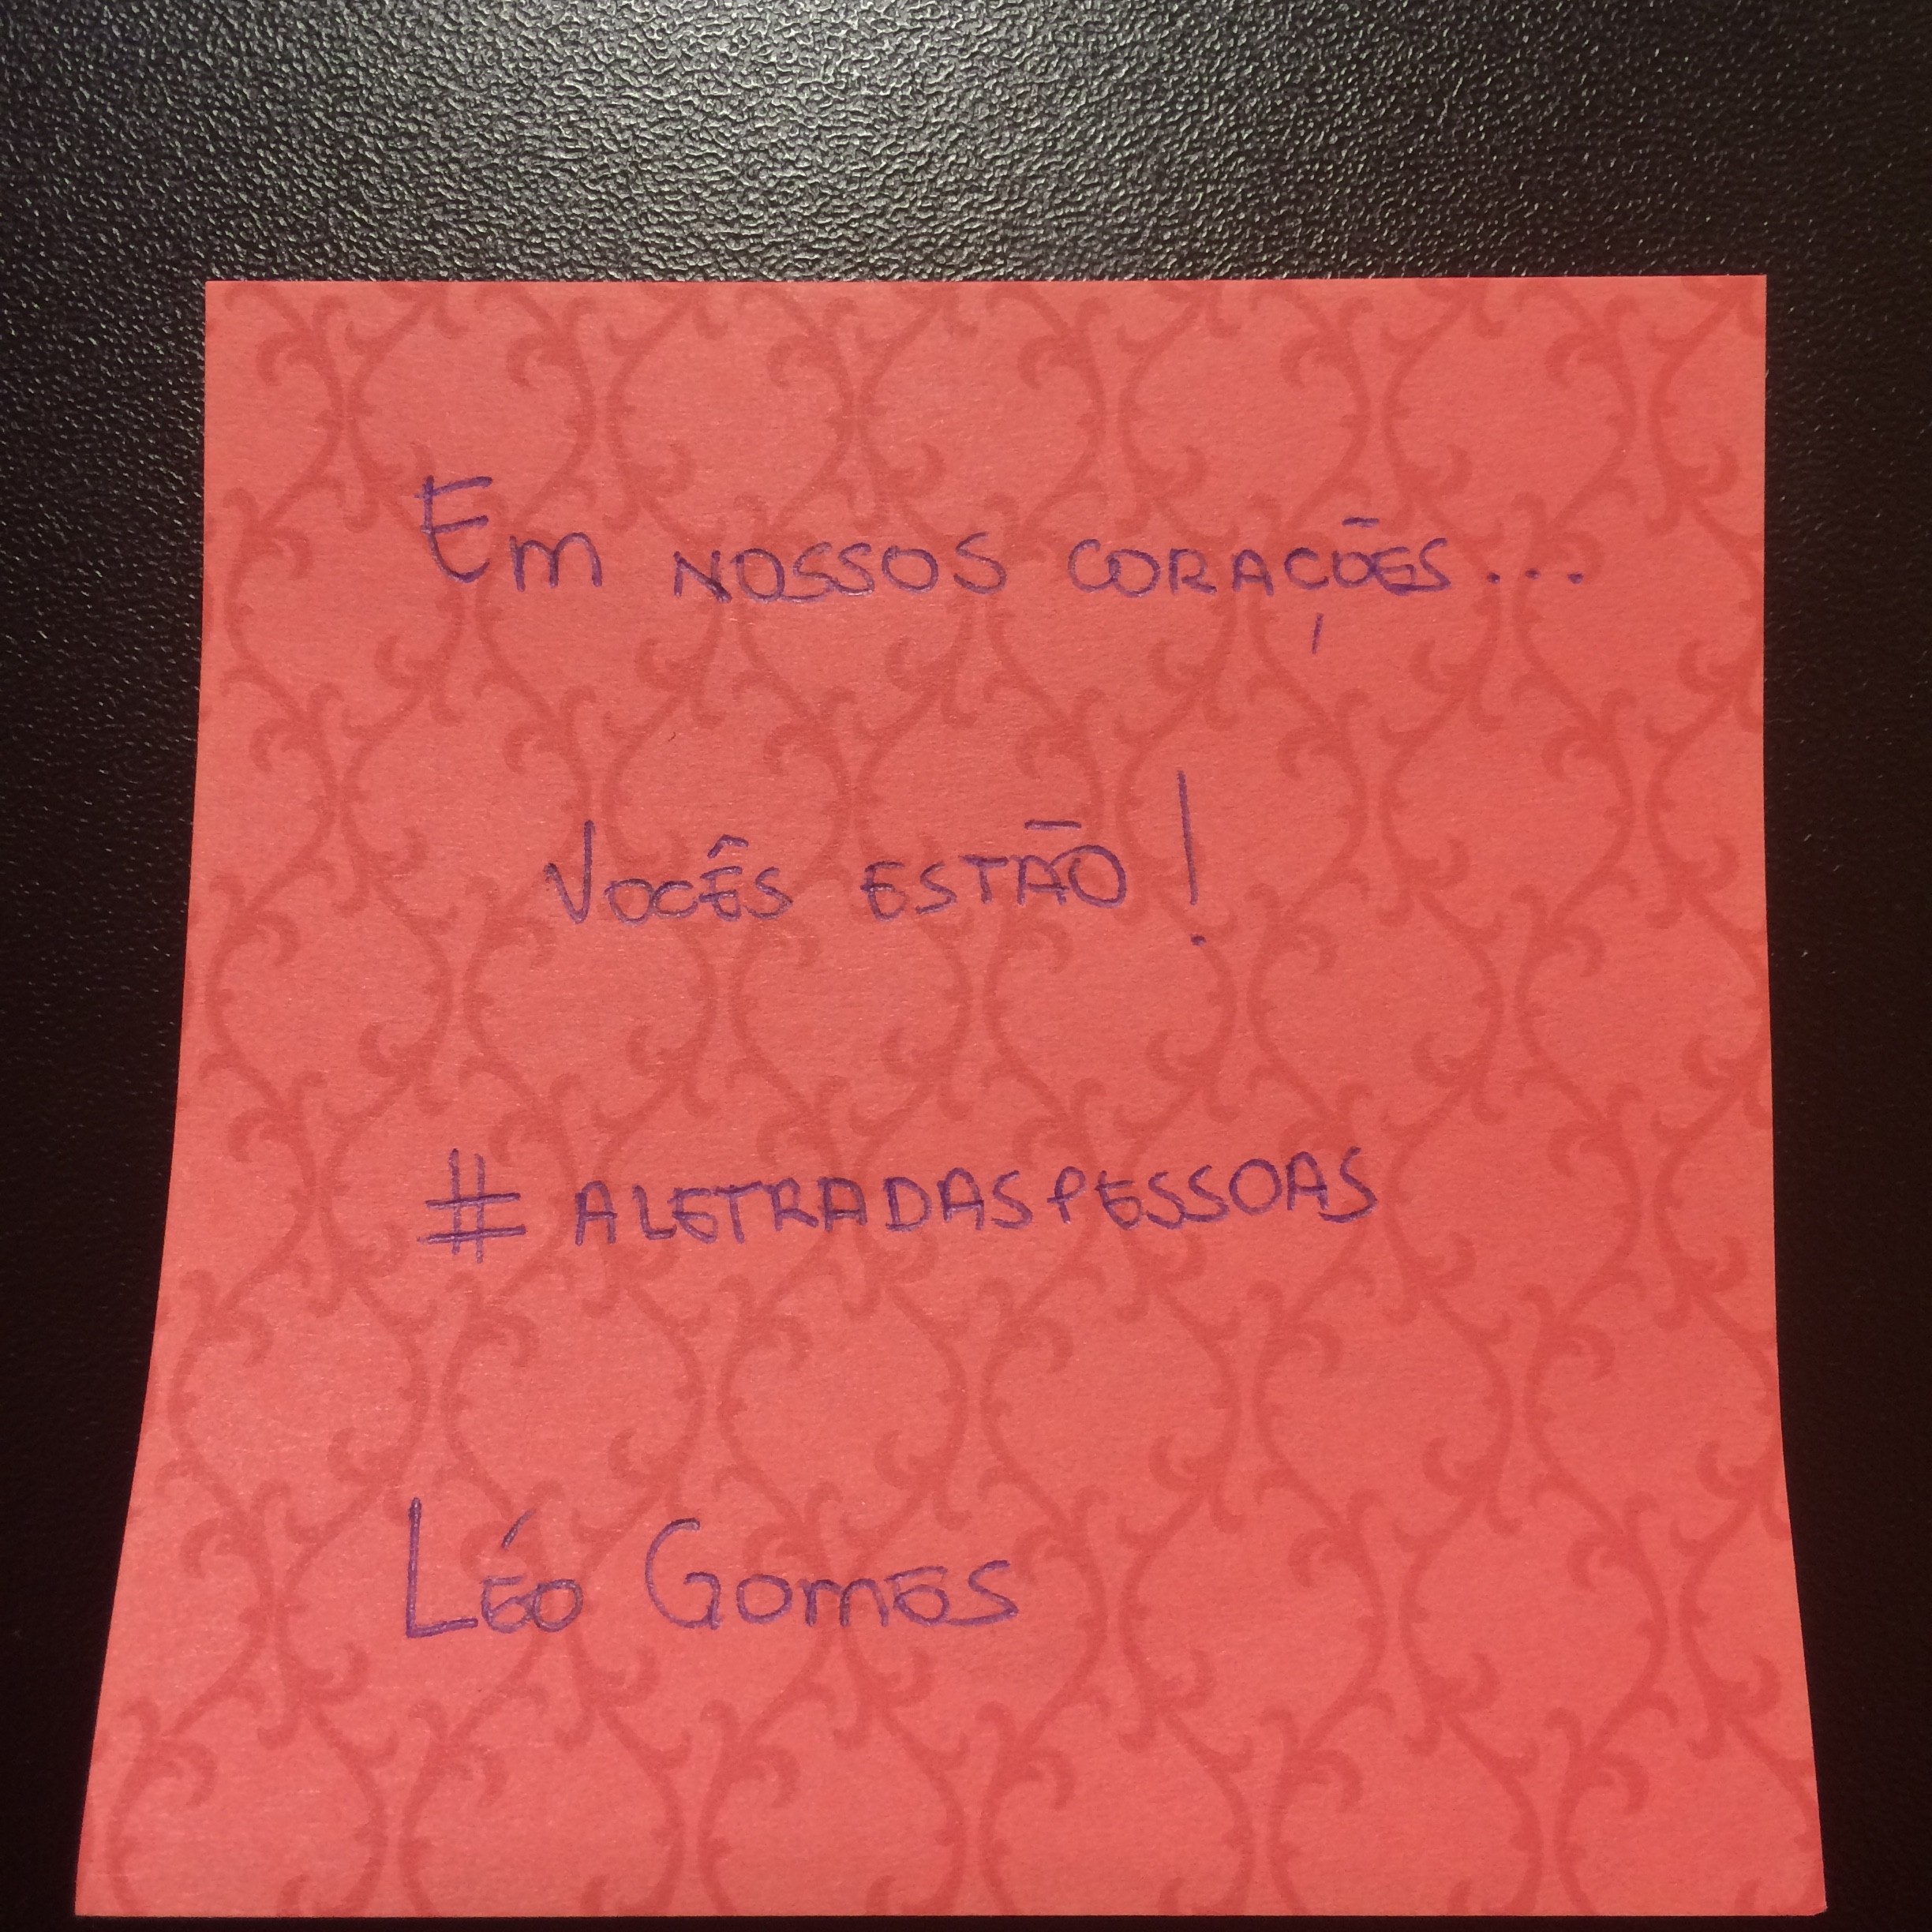 Em nossos corações...
Vocês estão!
# ALETRADASPESSOAS
Léo Gomes